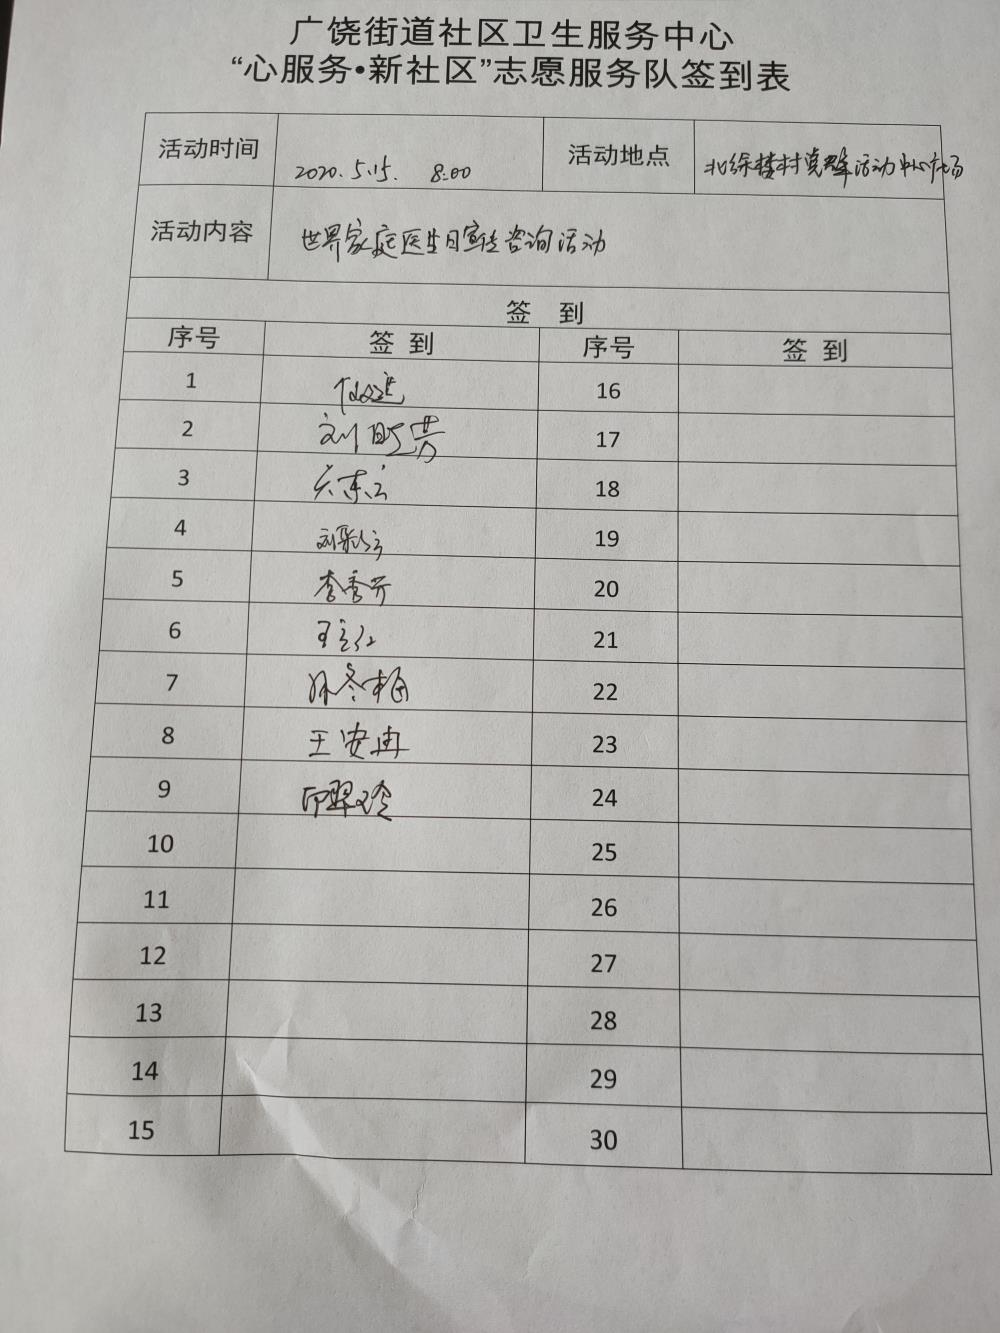 广饶街道社区卫生服务中心
“心服务•新社区”志愿服务队签到表
活动时间 2020.5.15. 8:00 活动地点 北徐楼村党群活动中心广场
活动内容 世界家庭医生日宣传咨询活动
签 到
序号 签 到 序号 签 到
1 16
2 刘 17
3 18
4 刘 19
5 李秀芹 20
6 王立红 21
7 孙冬梅 22
8 王安冉 23
9 24
10 25
11 26
12 27
13 28
14 29
15 30